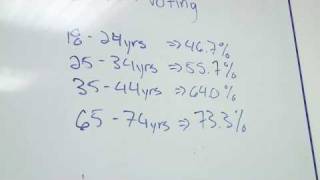 voting
18-24yrs ⇒ 46.7%
25-34yrs ⇒ 55.7%
35-44yrs ⇒ 64.0%
65-74yrs ⇒ 73.3%